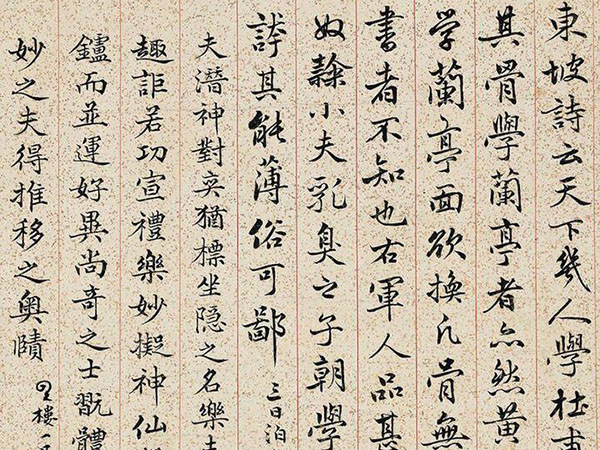 東坡詩云天下幾人學杜甫
其骨學蘭亭者亦然黃
学蘭亭面欲換凡骨無
書者不知也右軍人品甚
奴隸小夫乳臭之子朝學
誇其能薄俗可鄙 三日泊
夫潛神對弈猶標坐隐之名樂
趣詎若功宣禮樂妙擬神仙
鑪而並運好異尚奇之士翫體
妙之夫得推移之奥賾 里樓一